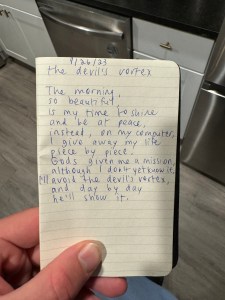 9/26/23
the devil's vortex
The morning,
so beautiful,
is my time to shine
and be at peace,
instead, on my computer,
I give away my life
piece by piece.
Gods given me a mission,
although I don't yet know it,
I'll avoid the devil's vortex,
and day by day
he'll show it.